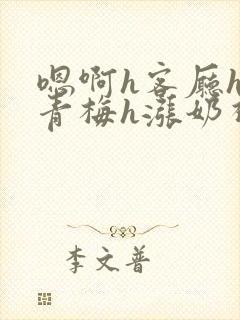 嗯啊h客厅h
青梅h涨奶
李文普